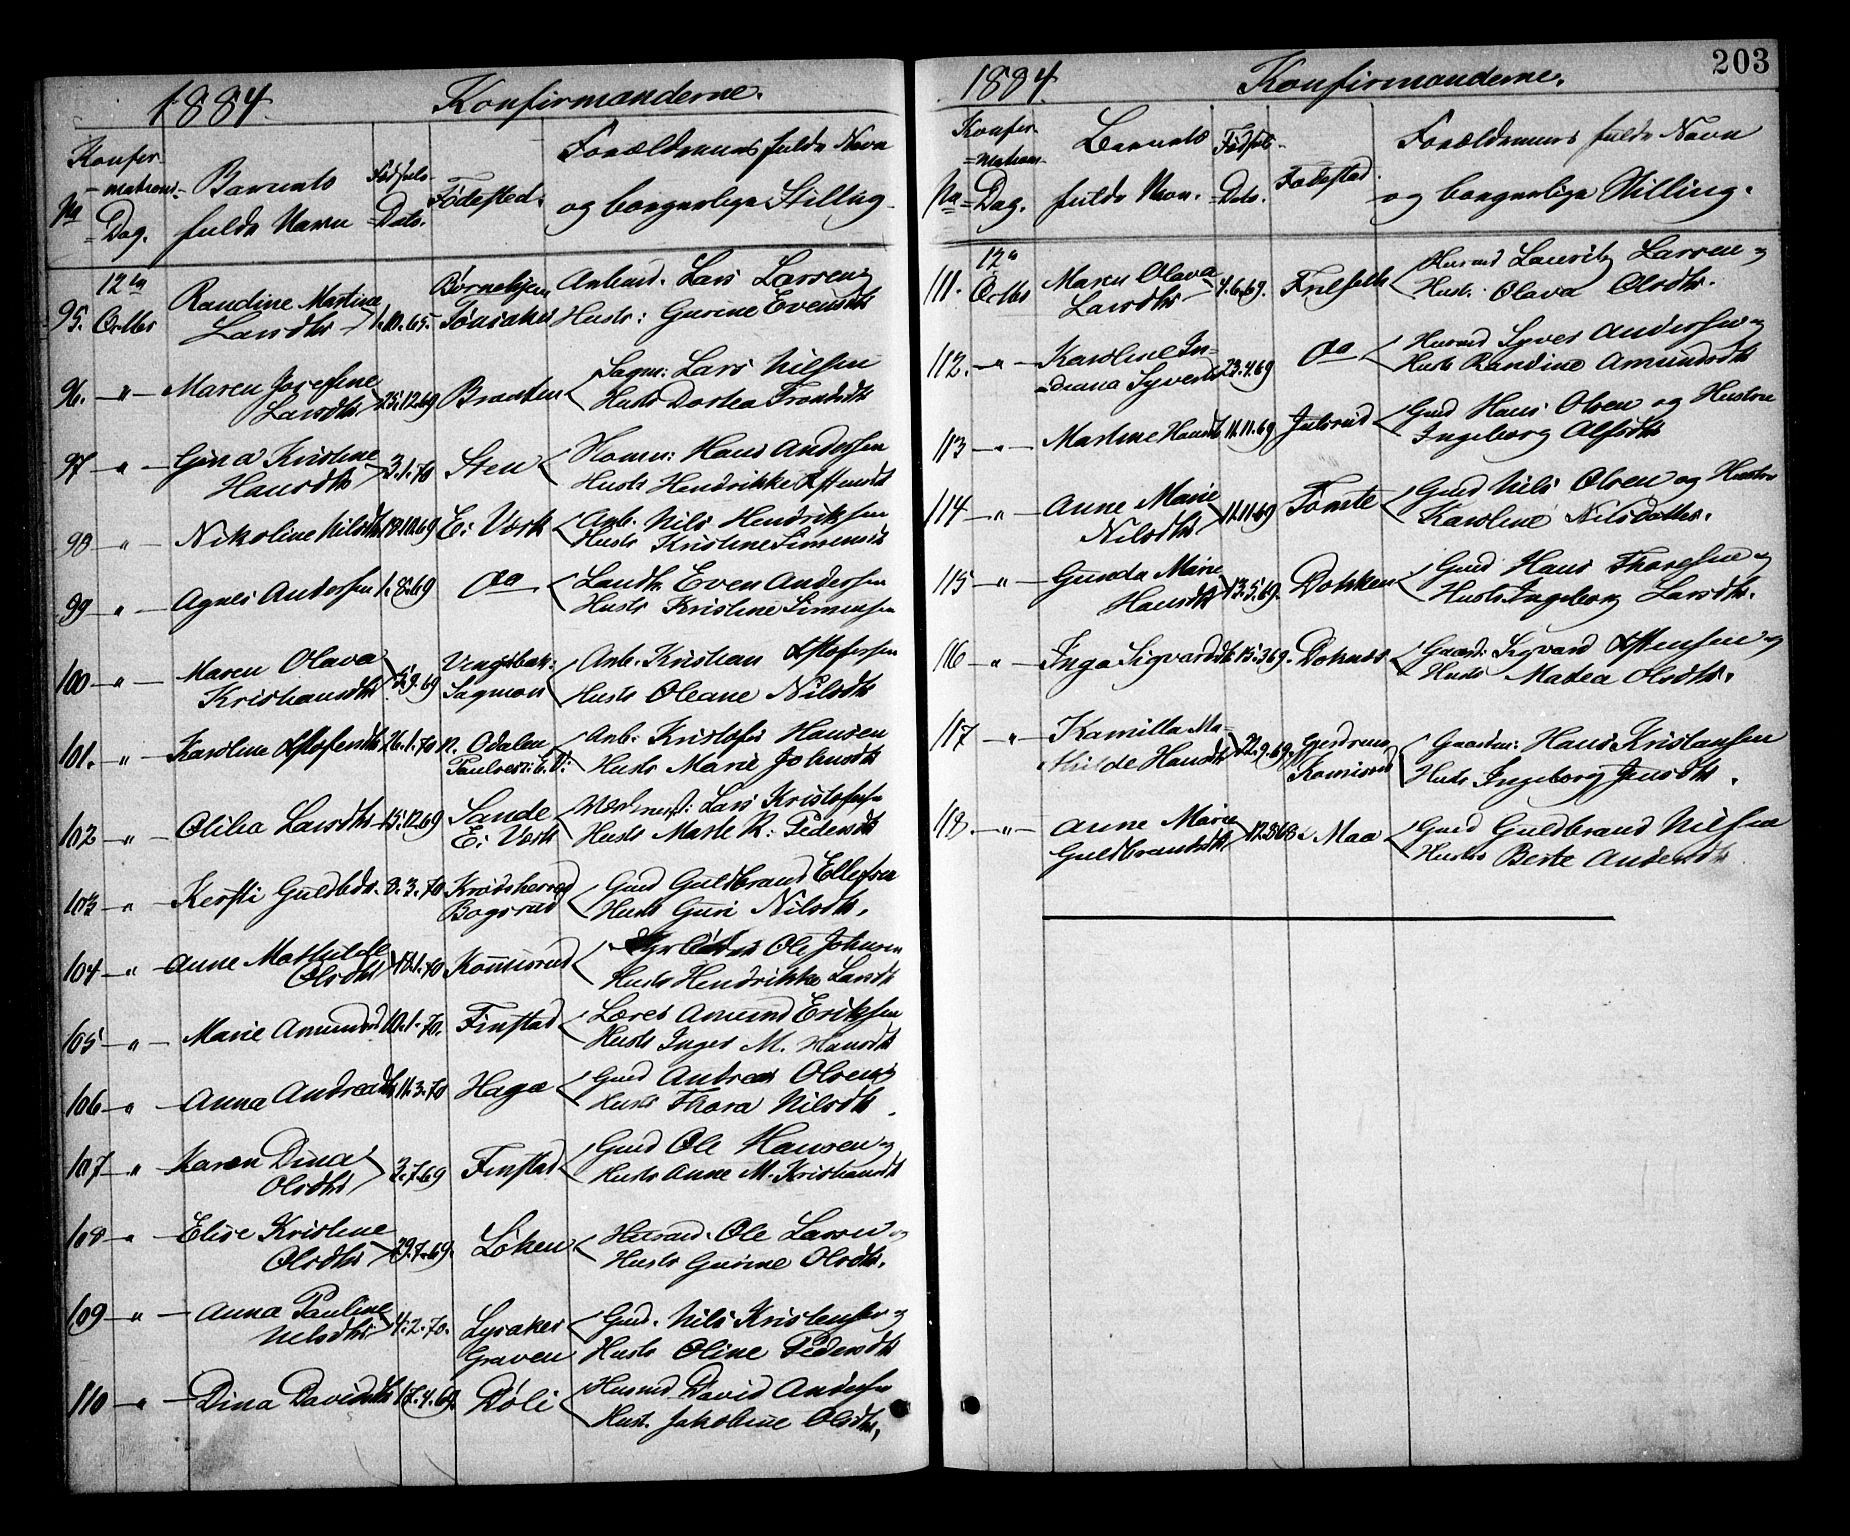 1884. Konfirmanderne.
Konfir-
=mations-
No =Dag.
Barnets
fulde Navn
Fødsels-
=Dato.
Fødested.
Forældrenes fulde Navn
og borgerlige Stilling.
12te
95. Octbr
Randine Martine
Larsdtr 1.10.65.
Børnehjem
Tønsaker
Anbud. Lars Larsen og
Hustr: Gurine Evensdtr
96. " Maren Josefine
Larsdtr 25.12.69 Braaten
Sagm: Lars Nilsen
Hustr Dorthea Trondsdtr
97 " Gina Kristine
Hansdtr 3.1.70 Sten
Homm: Hans Andersen
Hustr Hendrikke
98 " Nikoline Nilsdtr 18.10.69 Ei: Værk
Arb. Nils Hendriksen
Hustr Kristine Simensdtr
99 " Agnes Andersen 1.8.69 Do
Landh. Even Andersen
Hustr Kristine Simensen
100 " Maren Olava
Kristiansdtr 5.9.69
Sagmoen
Arb. Kristian
Hustr Oleane Nilsdtr
101. " Karoline 26.1.70 N. Odalen
Arb. Kristofer Hansen
Hustr Marie Johnsdtr
102 " Otilia Larsdtr 15.12.69 Sande
Ei: Værk
Lars Kristofersen
Hustr Marte K: Pedersdtr
103 " Kersti Guldbdtr. 8.3.70 Krødsherred
Bogsrud
Gmd Guldbrand Ellefsen
Hustr Guri Nilsdtr.
104 " Anne Mathilde
Olsdtr 18.1.70 Komisrud
Ole Johnsen
Hustr Hendrikke Larsdtr
105 " Marie Amundsd 10.1.70. Finstad
Lærer Amund Eriksen
Hustr Inger M. Hansdtr
106 " Anna Andreadtr 11.3.70 Haga
Gmd Andreas Olsen og
Hustr Thora Nilsdtr.
107 " Karen Dina
Olsdtr 3.7.69 Finstad
Gmd Ole Hansen og
Hustr Anne M. Kristiansdtr
108 " Elise Kristine
Olsdtr 29.7.69. Løken
Husmd. Ole Larsen og
Hustr Gurine Olsdtr.
109 " Anna Pauline
Nilsdtr 4.2.70. Lysaker
Graven
Gmd. Nils Kristensen og
Hustr Oline Pedersdtr
110 " Dina Davidsdtr 17.4.69. Røli
Husmd David Andersen
Hust. Jakobine Olsdtr,
203
1884. Konfirmanderne.
Konfir-
=mations-
No =Dag.
Barnets
fulde Navn.
Fødsels-
=Dato.
Fødested.
Forældrenes fulde Navn
og borgerlige Stilling.
12te
111. Octbr Maren Olava
Larsdtr 4.6.69. Frilseth
Husmd Lauritz Larsen og
Hust: Olava Olsdtr.
112. " Karoline In-
=diana Syversdtr 23.4.69 Do
Husmd Syver Andersen og
Hustr Randine Amundsdtr
113 " Martine Hansdtr 11.11.69 Julsrud
Gmd Hans Olsen og Hustru
Ingeborg Alfsdtr
114 " Anne Marie
Nilsdtr 11.11.69 Tomte
Gmd Nils Olsen og Hustru
Karoline Nilsdatter.
115 " Gunda Marie
Hansdtr 13.5.69. Dokken
Gmd Hans Thoresen og
Hustr Ingeborg Larsdtr.
116 " Inga Sigvardsdtr 15.3.69. Doknes
Gaard: Sigvard og
Hustr Mathea Olsdtr.
117 " Kamilla Ma-
thilde Hansdtr 22.9.69. Gjerdrum
Komisrud
Gaardm: Hans Kristiansen
Hustr Ingeborg Jensdtr.
118. " Anne Marie
Guldbrandsdtr 12.8.68. Maa
Gmd Guldbrand Nilsen
Hustr Berte Andersdtr.